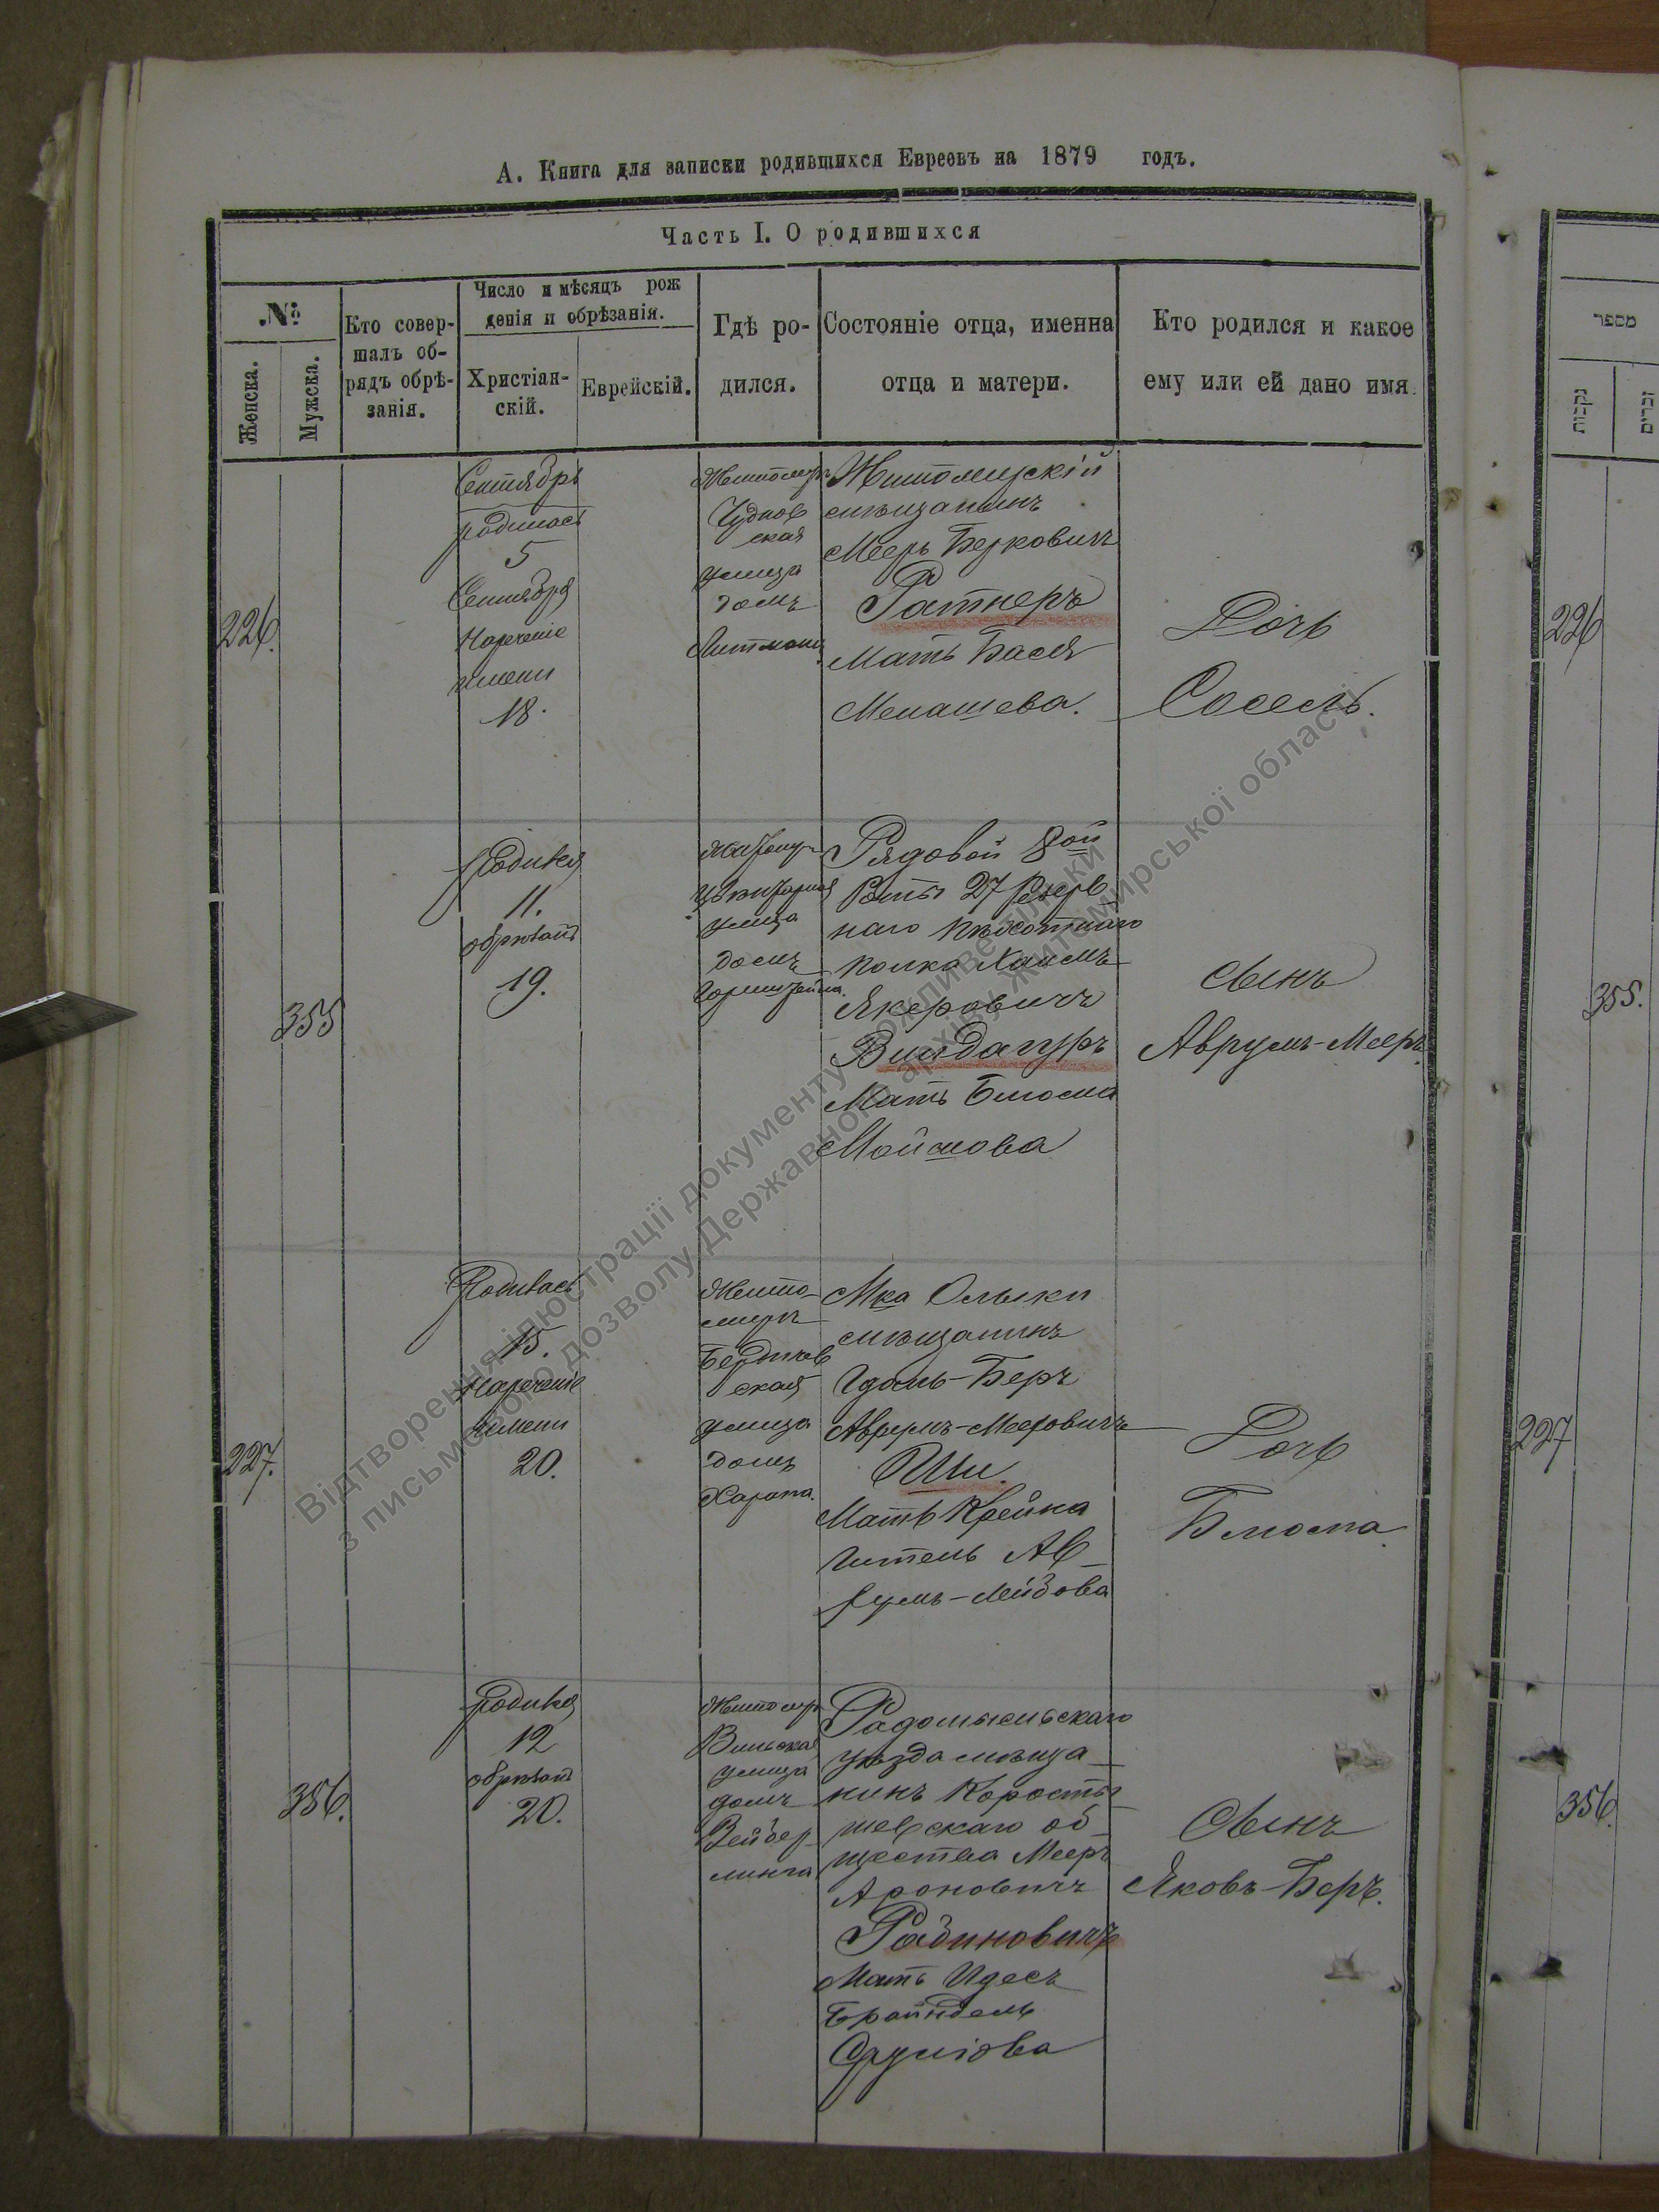 А. Книга для записки родившихся Евреевъ на 1879 годъ.
Часть I. О родившихся
№
Женска.
Мужска.
Кто совер-
шалъ об-
рядъ обрѣ-
занія.
Число и мѣсяцъ рож
денія и обрѣзанія.
Христіан-
скій.
Еврейскій.
Гдѣ ро-
дился.
Состояніе отца, именна
отца и матери.
Кто родился и какое
ему или ей дано имя.
226.
Сентябрь
родилась
5
Сентября
Нареченіе
имени
18.
Житомиръ
Чуднов
ская
улица
домъ
Житомирскій
мѣщанинъ
Мееръ Берковичъ
Ратнеръ
Мать Бася
Менашева.
Дочь
Сосель.
355
родился
11.
обрѣзанъ
19.
улица
домъ
Рядовой 8ой
Роты 27 Резерв
наго пѣхотнаго
полка Хаимъ
Якеровичъ
Виндагуръ
Мать Блюма
Мойшова
Сынъ
Аврумъ-Мееръ.
227.
Родилась
15.
Нареченіе
имени
20.
Жито-
миръ
Бердичев
ская
улица
домъ
Мка Олыки
мѣщанинъ
Идель-Беръ
Аврумъ-Мееровичъ
Мать Крейна
Гитель Ав
румъ-Лейзова
Дочь
Блюма.
356.
родился
12
обрѣзанъ
20.
Житомиръ
Вильская
улица
домъ
Радомысльскаго
уѣзда мѣща
нинъ Коросты
шевскаго об
щества Мееръ
Ароновичъ
Рабиновичъ
Мать Идесъ
Брайндель
Срулiова
Сынъ
Яковъ-Беръ.
מספר
נקבות
זכרים
226
355.
227
356.
Відтворення ілюстрації документу можливе тільки
з письмового дозволу Державного архіву Житомирської області